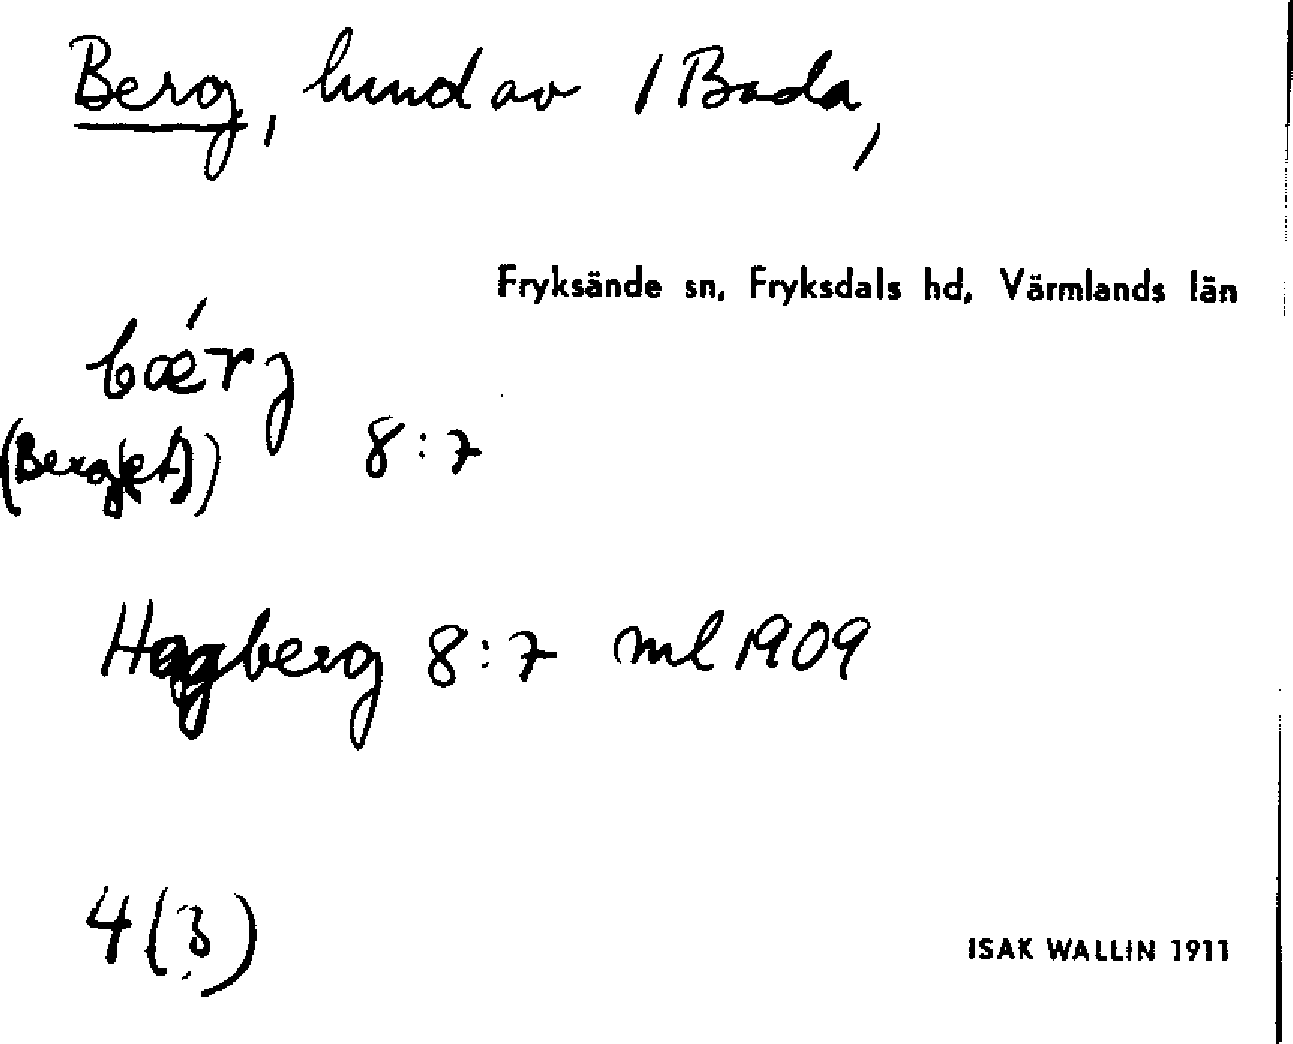 Berg, lund av 1 Bada,
Fryksände sn, Fryksdals hd, Värmlands län
bæ´rj
(Berg(et)) 8:7
Hagberg 8:7 ml 1909
4(3)
ISAK WALLIN 1911